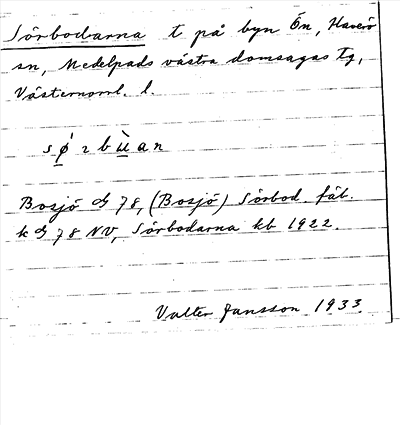 Sörbodarna t på byn Ön, Haverö
sn, Medelpads västra domsagas tg,
Västernorrl. l.
sǿrbùan
Bosjö G 78, (Bosjö) Sörbod. fäb.
k G 78 NV, Sörbodarna kb 1922.
Valter Jansson 1933.